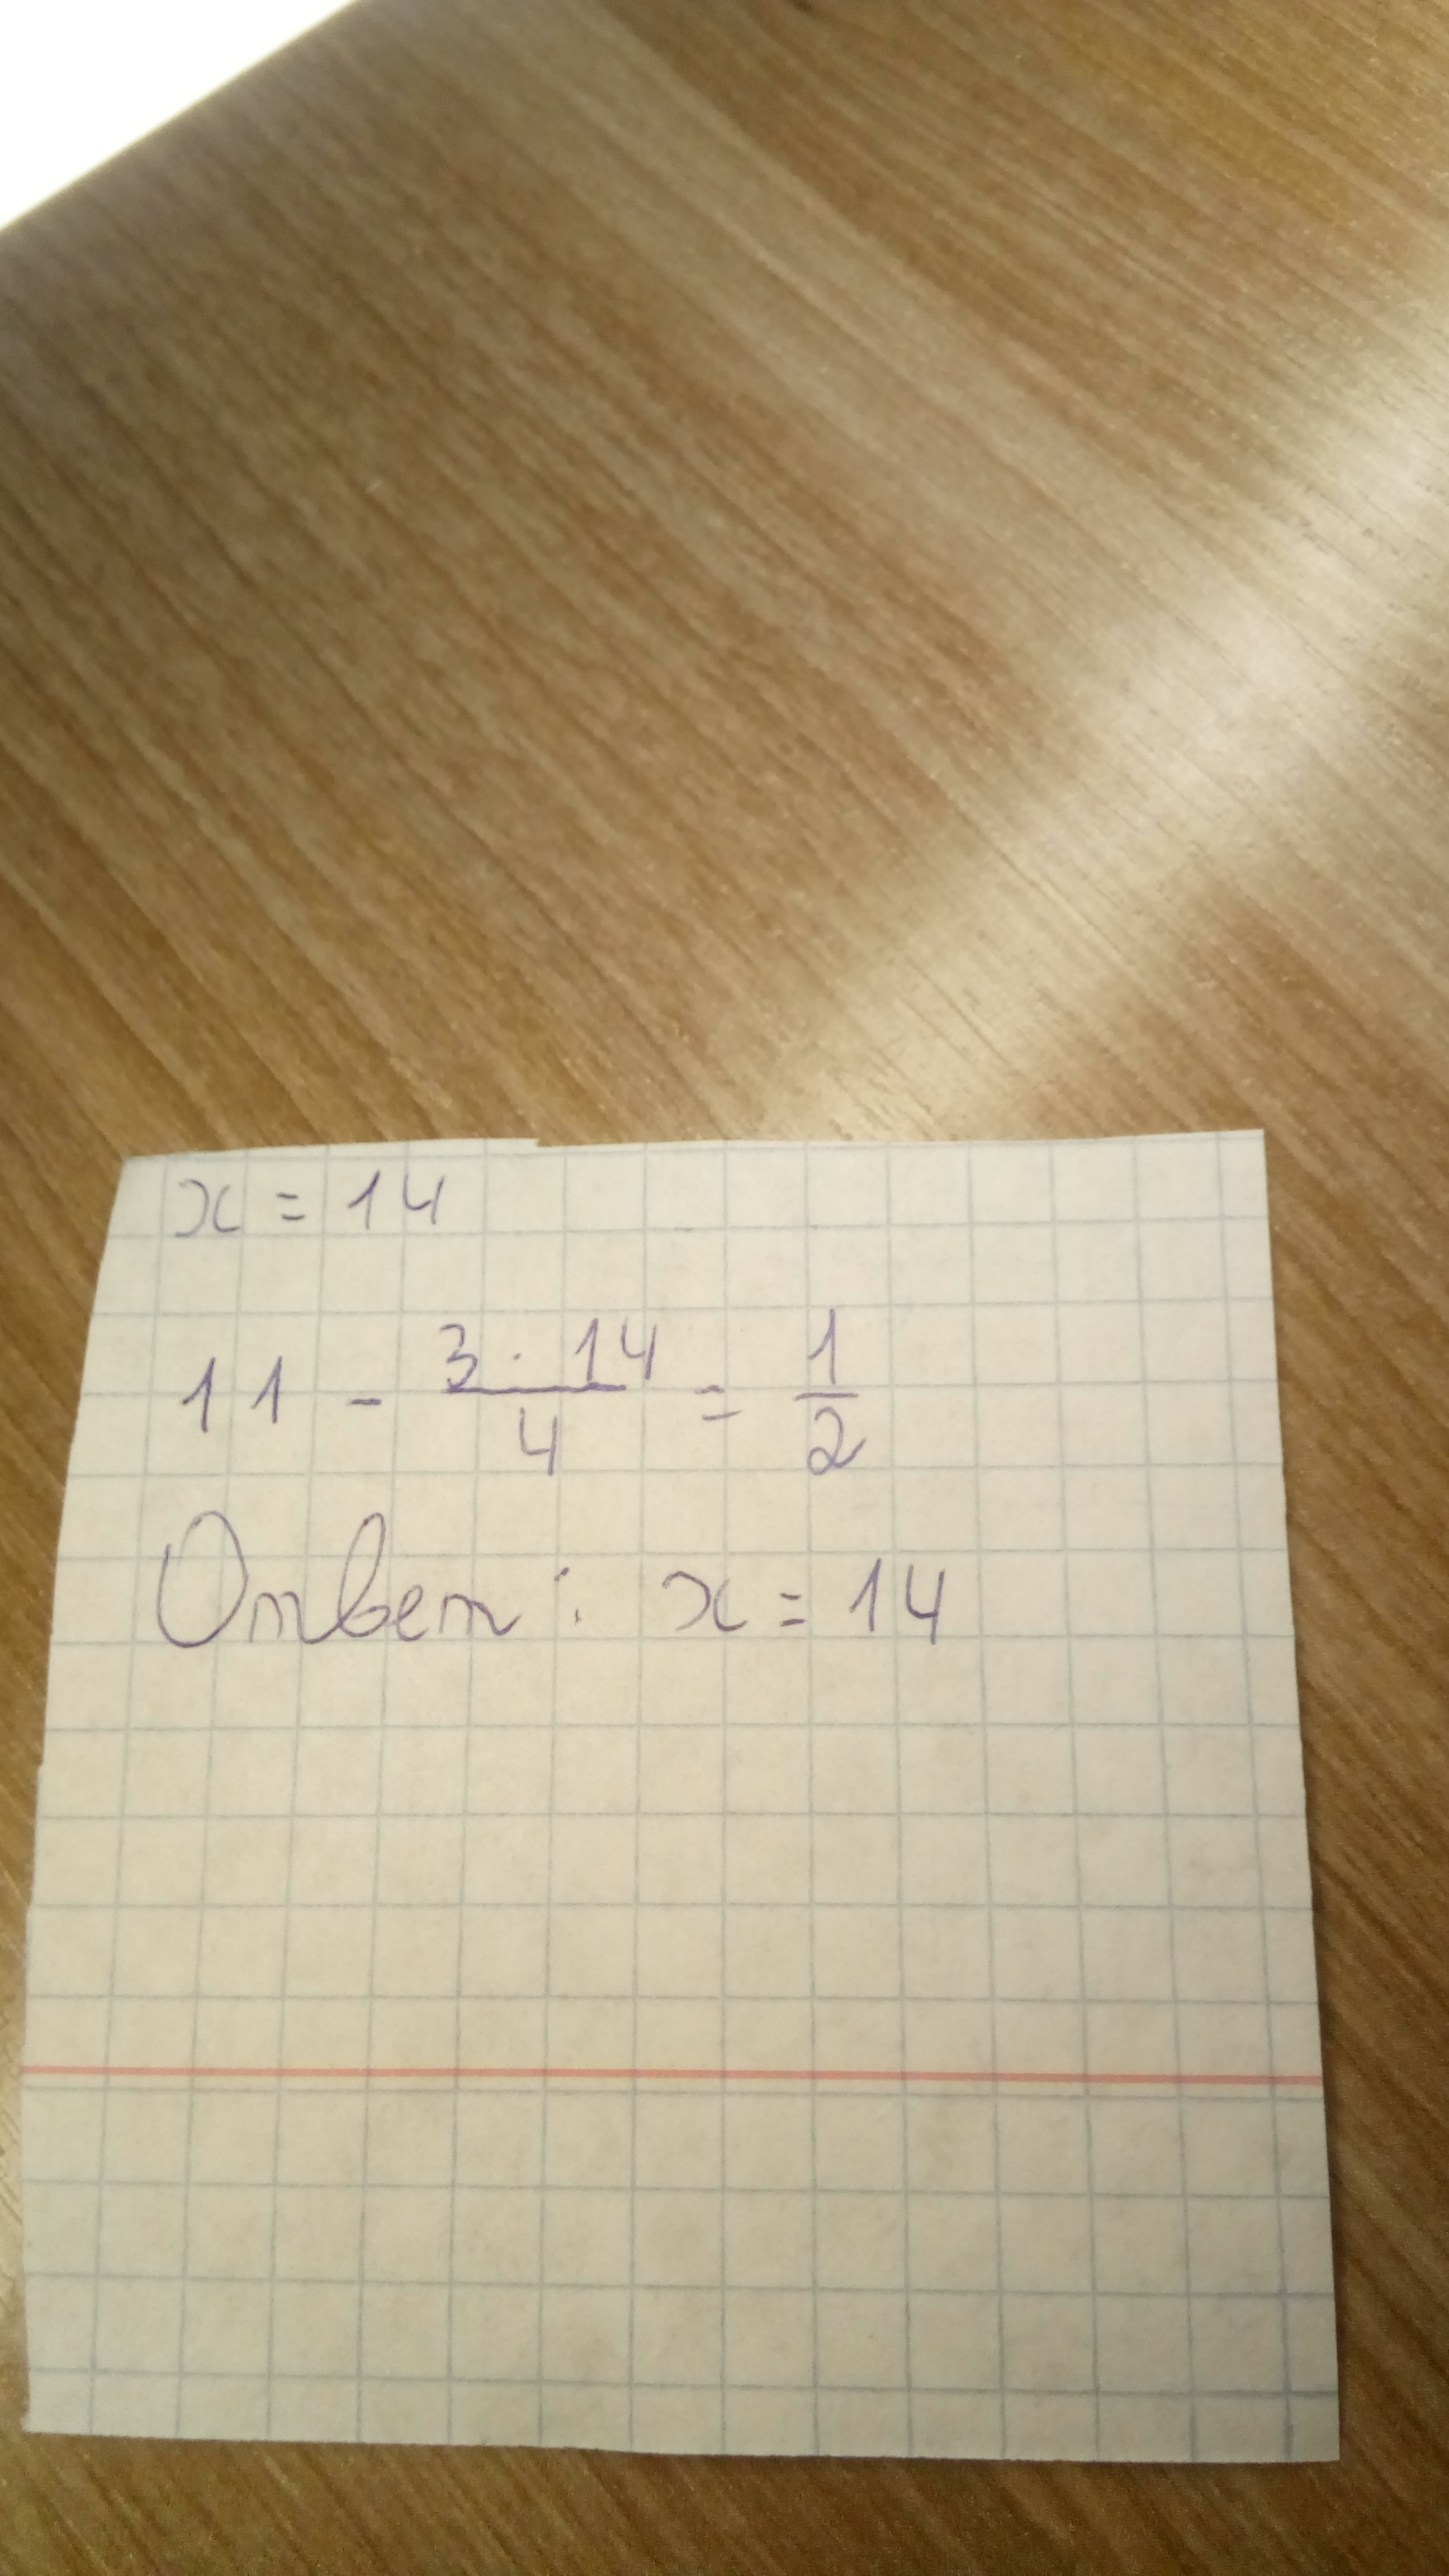 x = 14
11 - \frac{3 \cdot 14}{4} = \frac{1}{2}
Ответ: x = 14